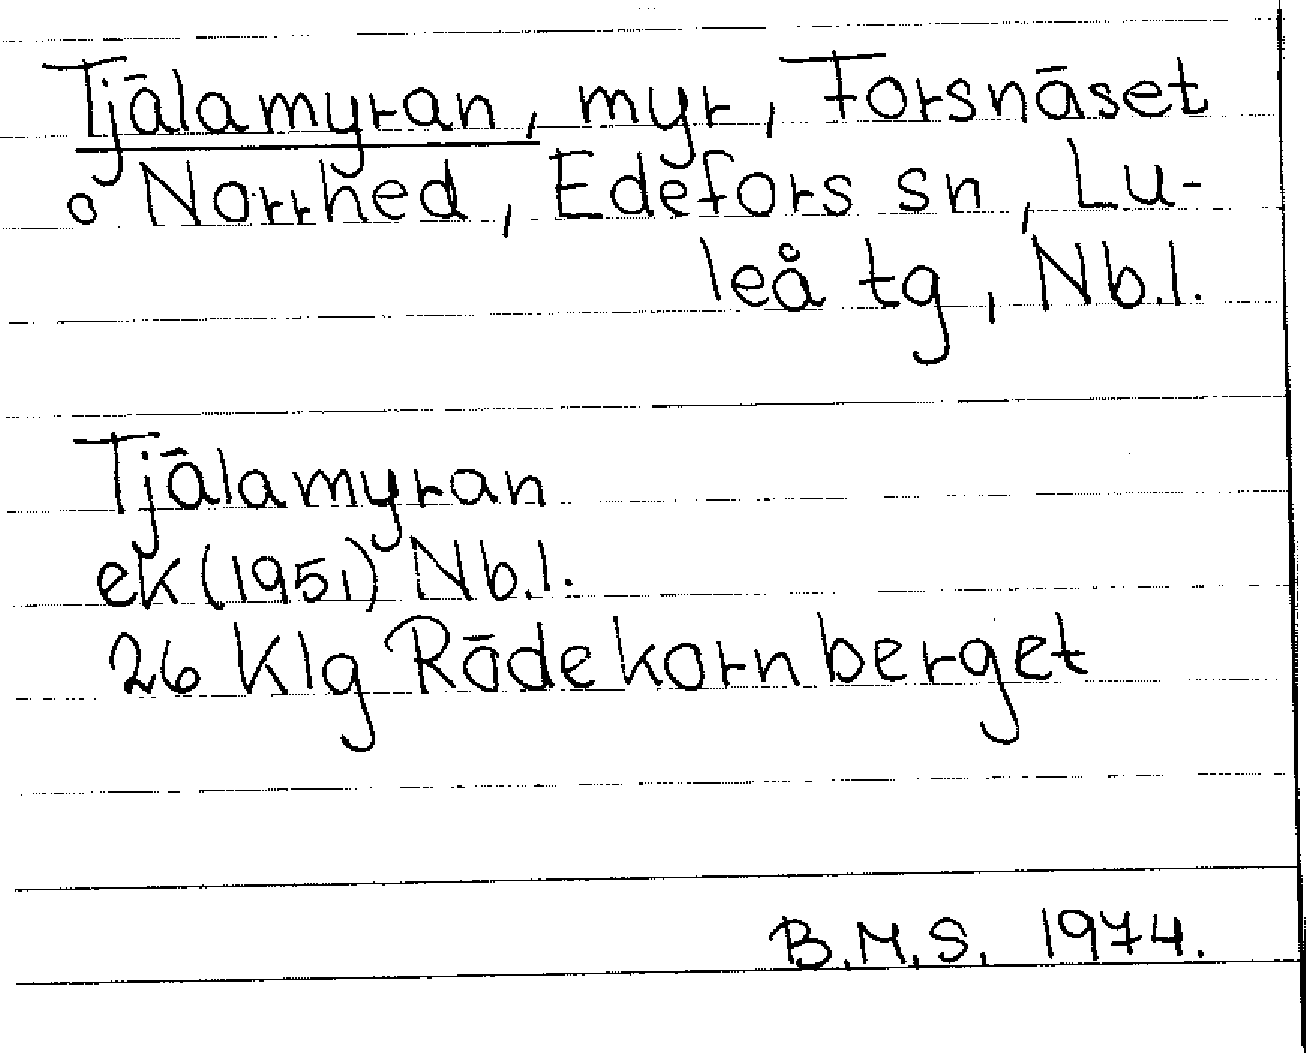 Tjälamyran, myr, Forsnäset
o Norrhed, Edefors sn, Lu-
leå tg, Nb.l.
Tjälamyran
ek (1951) Nb.l.
26 Klg Rödekornberget
B.M.S. 1974.